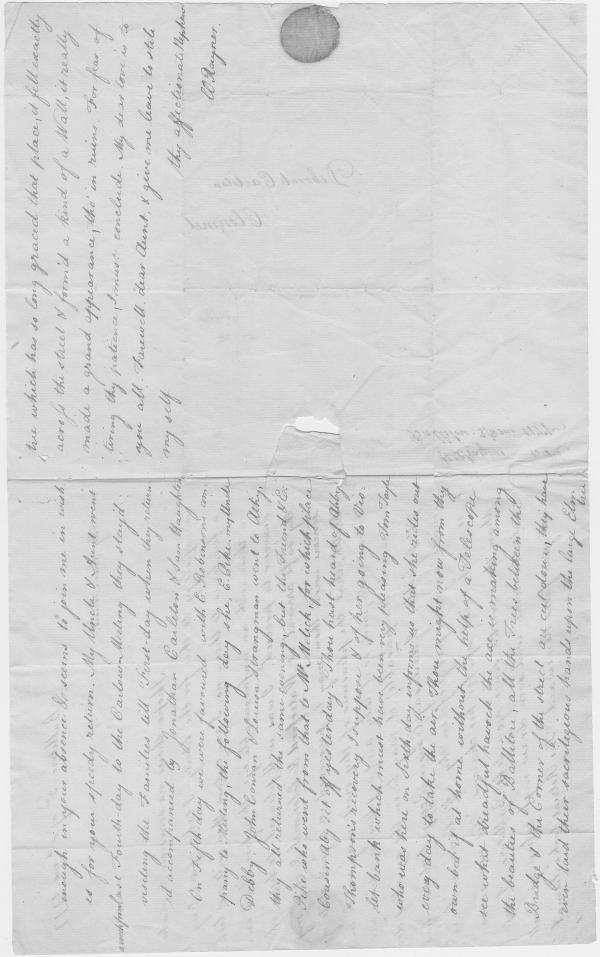 enough in your absence & seems to join me in wish
es for your speedy return. My Uncle & Aunt went
last Fourth-day to the Carlow Meeting they stay'd
visiting the Families till First day when they return
'd accompanied by Jonathan Carleton & Sam Haughton
On Fifth day we were favoured with E: Robinson's com:
pany to Meeting, the following day she, E Pike, my Uncle
Debby, John Conran & Louisa Strangman went to Athy,
they all returned the same evening, but the Friend & E:
Pike who went from that to Mt. Melick, for which place
Cousin Aby set off yesterday. Thou hast heard of Abby
Thompson's recovery I suppose & of her going to Vio:
let bank which must have been very pleasing. Tom
who was here on Sixth day informs us that she rides out
every day to take the air. Thou might now from thy
own bed if at home without the help of a Telescope
see what dreadful havock the axe is making among
the beauties of Ballitore, all the Trees between the
Bridge & the Corner of the street are cut down, they have
even laid their sacrilegious hands upon the large Elm
tree
tree which has so long graced that place, it fell exactly
across the street & form'd a kind of a Wall, it really
made a grand appearance, tho' in ruins. For fear of
tiring thy patience, I must conclude. My dear love is to
you all. Farewell dear Aunt, & give me leave to stile
myself
thy affectionate Nephew
W Rayner.
Deborah Carleton
Clonmel